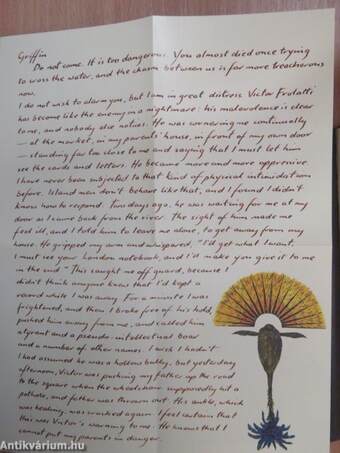 Griffin
Do not come. It is too dangerous. You almost died once trying
to cross the water, and the chasm between us is far more treacherous
now.
I do not wish to alarm you, but I am in great distress. Victor Frolatti
has become like the enemy in a nightmare: his malevolence is clear
to me, and nobody else notices. He was cornering me continually
— at the market, in my parents' house, in front of my own door
— standing far too close to me and saying that I must let him
see the cards and letters. He became more and more oppressive.
I have never been subjected to that kind of physical intimidation
before. Island men don't behave like that, and I found I didn't
know how to respond. Two days ago, he was waiting for me at my
door as I came back from the river. The sight of him made me
feel ill, and I told him to leave me alone, to get away from my
house. He gripped my arm and whispered, "I'll get what I want.
I must see your London notebook, and I'd make you give it to me
in the end." This caught me off guard, because I
didn't think anyone knew that I'd kept a
record while I was away. For a minute I was
frightened, and then I broke free of his hold,
pushed him away from me, and called him
a tyrant and a pseudo-intellectual boar
and a number of other names. I wish I hadn't.
I had assumed he was a hollow bully, but yesterday
afternoon, Victor was pushing my father up the road
to the square when the wheelchair supposedly hit a
pothole, and father was thrown out. His ankle, which
was healing, was cracked again. I feel certain that
this was Victor's warning to me. He knows that I
cannot put my parents in danger.
Antikvárium.hu